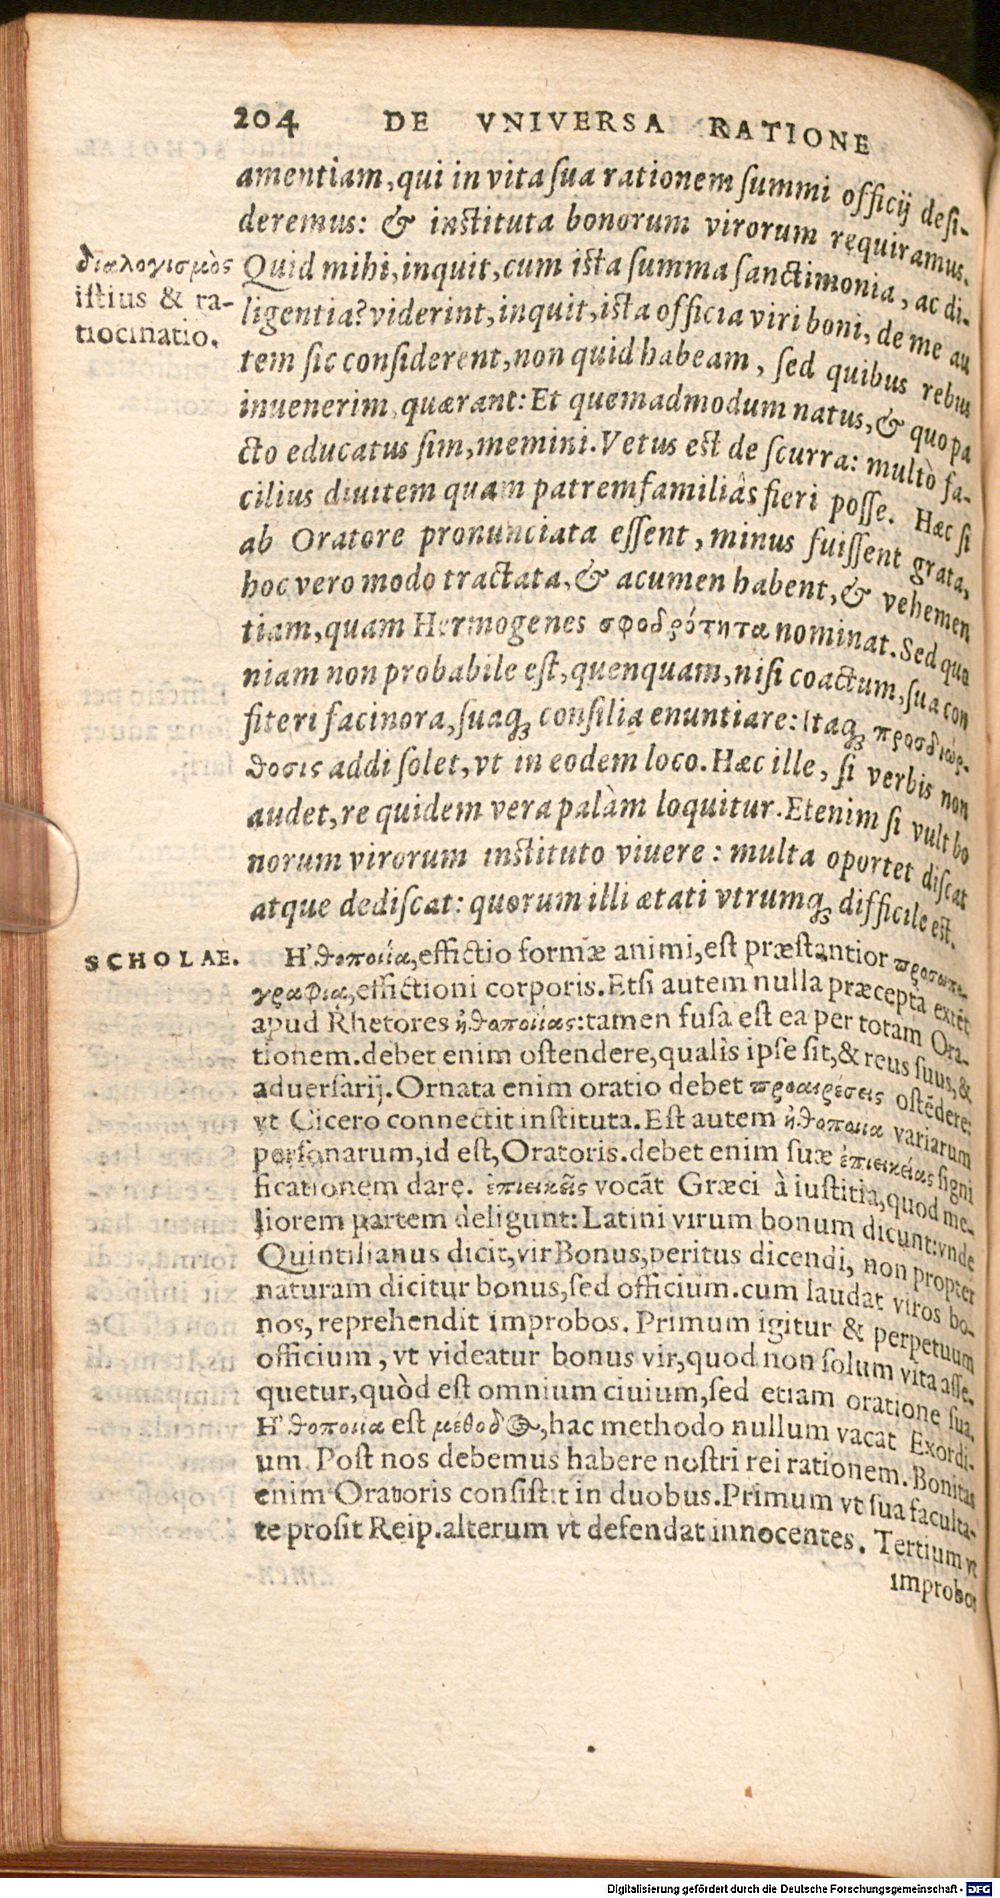 204 DE VNIVERSA RATIONE
amentiam, qui in vita sua rationem summi officij desi-
deremus: & instituta bonorum virorum requiramus.
διαλογισμὸς
istius & ra-
tiocinatio.
Quid mihi, inquit, cum ista summa sanctimonia, ac di-
ligentia? viderint, inquit, ista officia viri boni, de me au
tem sic considerent, non quid habeam, sed quibus rebus
inuenerim, quærant: Et quemadmodum natus, & quo pa
cto educatus sim, memini. Vetus est de scurra: multò fa-
cilius diuitem quam patremfamiliâs fieri posse. Hæc si
ab Oratore pronunciata essent, minus fuissent grata,
hoc vero modo tractata, & acumen habent, & vehemen
tiam, quam Hermogenes σφοδρότητα nominat. Sed quo
niam non probabile est, quenquam, nisi coactum, sua con
fiteri facinora, suaq; consilia enuntiare: Itaq; προσδιόρ-
θοσις addi solet, vt in eodem loco. Hæc ille, si verbis non
audet, re quidem vera palàm loquitur. Etenim si vult bo
norum virorum instituto viuere: multa oportet discat
atque dediscat: quorum illi ætati vtrumq; difficile est.
SCHOLAE.
H'θοποιία, effictio formæ animi, est præstantior προσωπο-
γραφια, effictioni corporis. Etsi autem nulla præcepta extēt
apud Rhetores ἠθοποιίας: tamen fusa est ea per totam Ora-
tionem. debet enim ostendere, qualis ipse sit, & reus suus, &
adversarij. Ornata enim oratio debet προαιρέσεις ostēdere:
vt Cicero connectit instituta. Est autem ἠθοποιια variarum
personarum, id est, Oratoris. debet enim suæ ἐπιεικείας signi
ficationem dare. ἐπιεικεῖς vocāt Græci à iustitia, quod me-
liorem partem deligunt: Latini virum bonum dicunt: vnde
Quintilianus dicit, vir Bonus, peritus dicendi, non propter
naturam dicitur bonus, sed officium. cum laudat viros bo-
nos, reprehendit improbos. Primum igitur & perpetuum
officium, vt videatur bonus vir, quod non solum vita asse-
quetur, quòd est omnium ciuium, sed etiam oratione sua,
H'θοποιια est μέθοδος, hac methodo nullum vacat Exordi-
um. Post nos debemus habere nostri rei rationem. Bonitas
enim Oratoris consistit in duobus. Primum vt sua faculta-
te prosit Reip. alterum vt defendat innocentes. Tertium vt
improbos
Digitalisierung gefördert durch die Deutsche Forschungsgemeinschaft - DFG